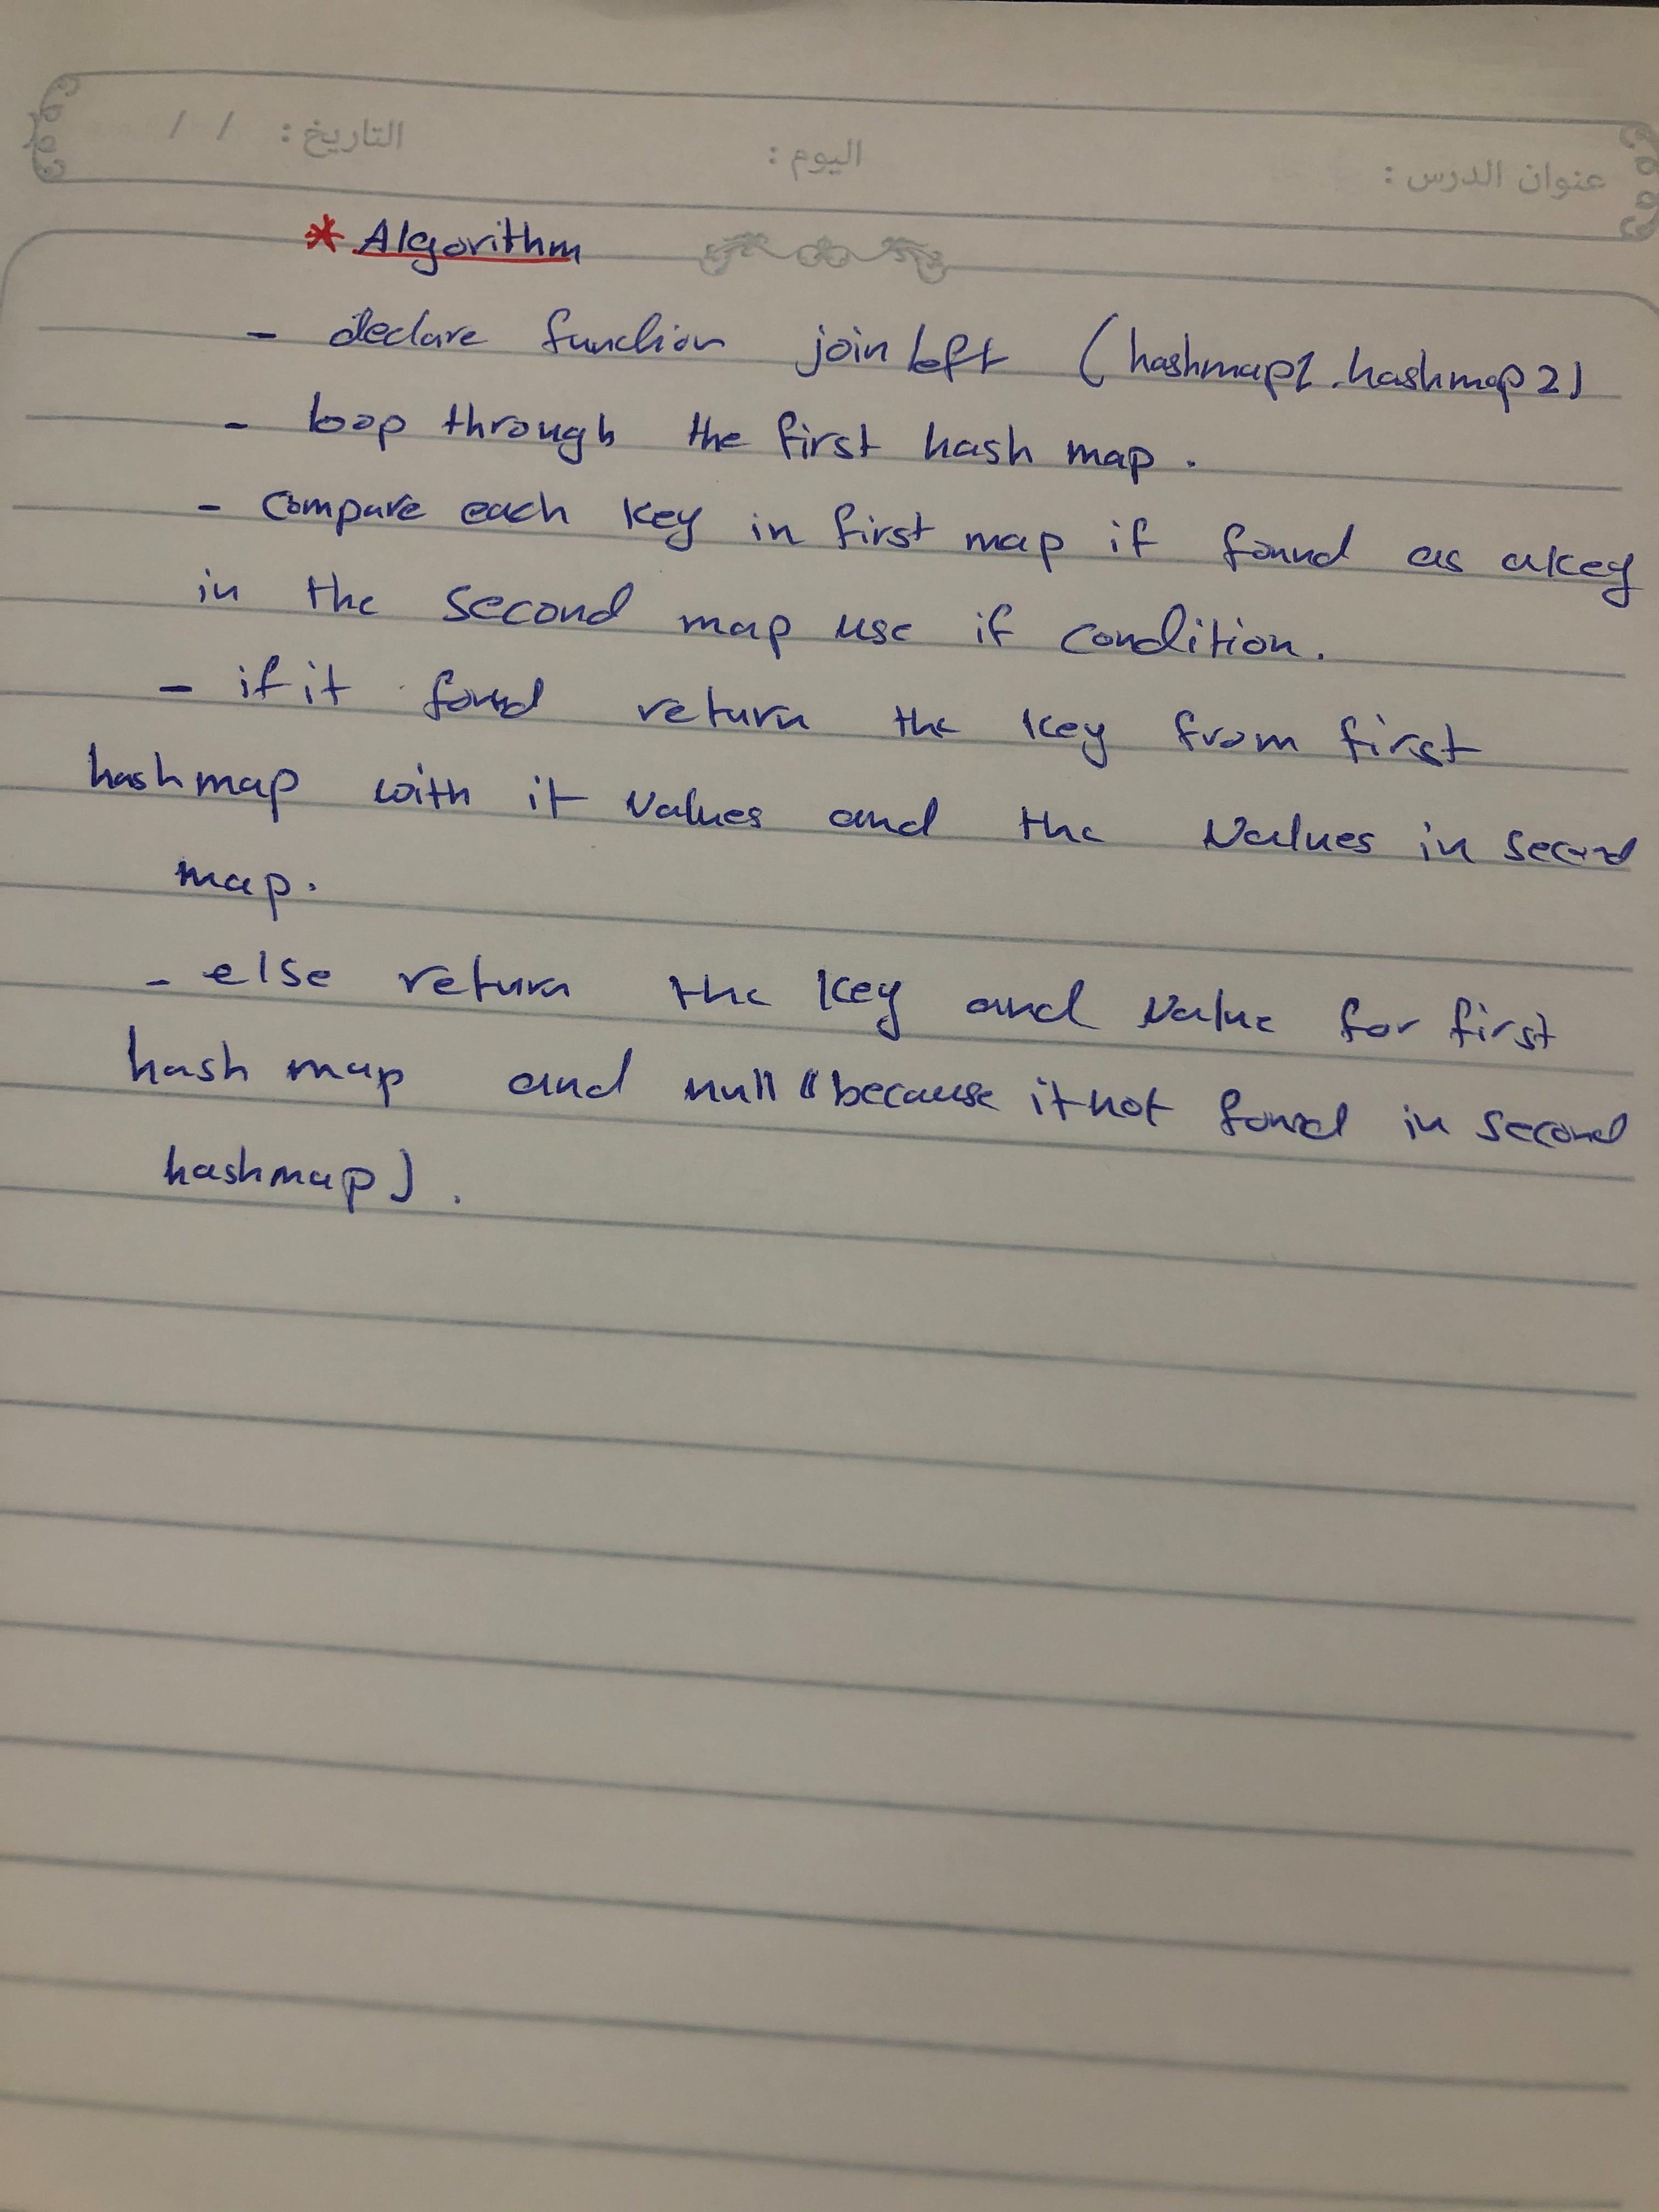 عنوان الدرس : اليوم : التاريخ : / /
* Algorithm
- declare function joinLeft (hashmap1, hashmap2)
- loop through the first hash map.
- Compare each key in first map if found as a key
in the second map use if condition.
- if it found return the key from first
hashmap with it values and the values in second
map.
- else return the key and value for first
hash map and null (because it not found in second
hashmap).